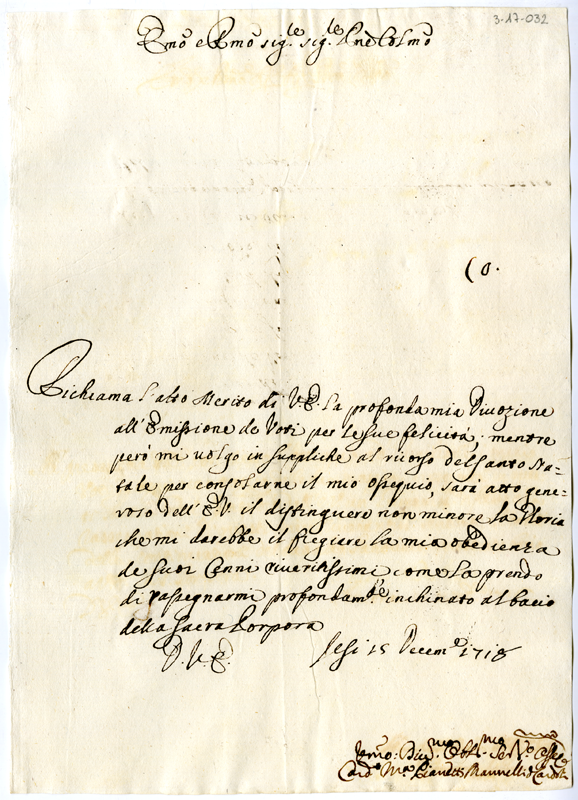 3-17-032
Emo e Rmo sig.le sig.le Pne Colmo
(o.
Richiama l'alto Merito di V.E. la profonda mia Divozione
all'Emissione de Voti per le sue felicità, mentre
però mi volgo in suppliche al ricorso del Santo Na-
tale per consolarne il mio ossequio, sarà atto gene-
roso dell'E.V. il distinguere non minore la Gloria
che mi darebbe il fregiare la mia obedienza
de suoi Cenni riveritissimi come la prendo
di rassegnarmi profondam.te inchinato al bacio
della Sacra Porpora
D.V.E. Jesi 15 Decem.e 1718